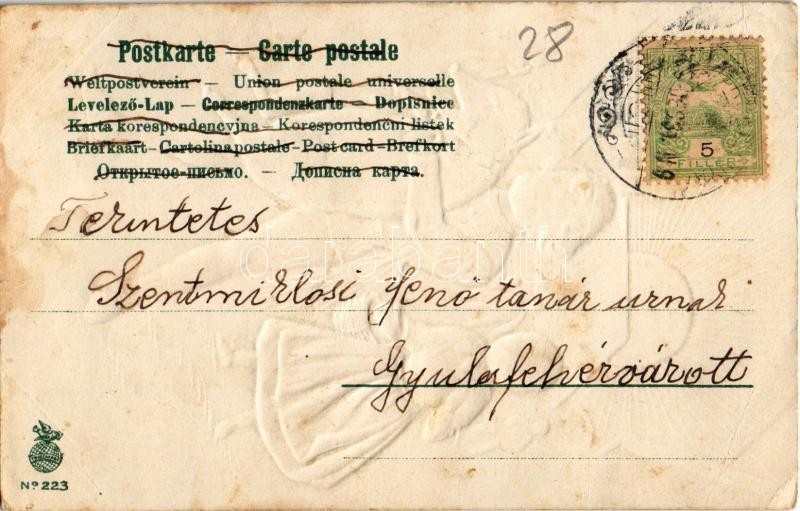 28
Postkarte — Carte postale
Weltpostverein — Union postale universelle
Levelező-Lap — Correspondenzkarte — Dopisnice
Karta korespondencyjna — Korespondenční listek
Briefkaart — Cartolina postale — Post card — Brefkort
Открытое письмо. — Дописна карта.
5
FILLÉR
Tekintetes
Szentmiklósi Jenő tanár urnak
Gyulafehérvárott
darabanth
Nº 223